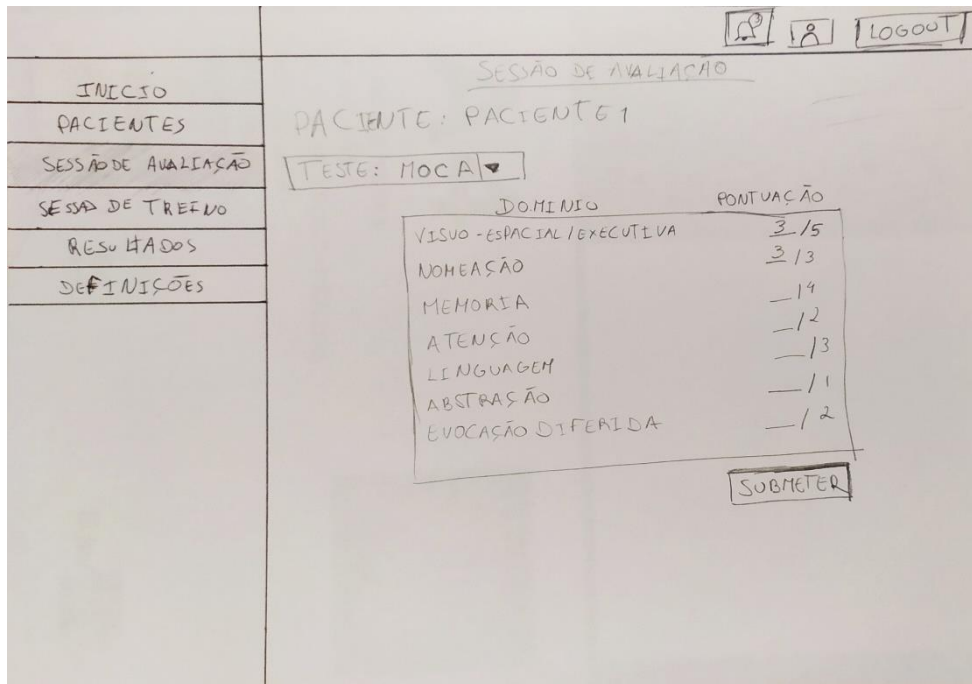 LOGOUT
INICIO
PACIENTES
SESSÃO DE AVALIAÇÃO
SESSÃO DE TREINO
RESULTADOS
DEFINIÇÕES
SESSÃO DE AVALIAÇÃO
PACIENTE: PACIENTE 1
TESTE: MOCA
DOMINIO PONTUAÇÃO
VISUO-ESPACIAL/EXECUTIVA 3/5
NOMEAÇÃO 3/3
MEMORIA _/4
ATENÇÃO _/2
LINGUAGEM _/3
ABSTRAÇÃO _/1
EVOCAÇÃO DIFERIDA _/2
SUBMETER